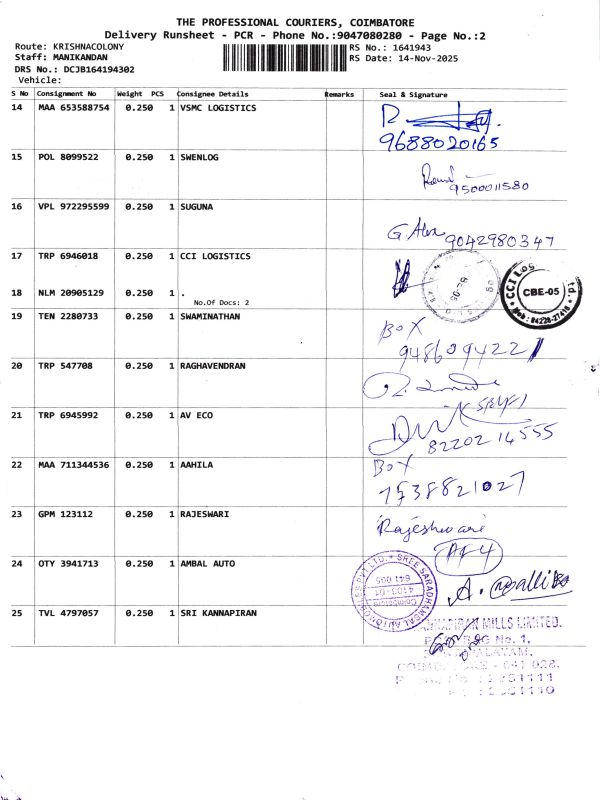 THE PROFESSIONAL COURIERS, COIMBATORE
Delivery Runsheet - PCR - Phone No.:9047080280 - Page No.:2
Route: KRISHNACOLONY
RS No.: 1641943
Staff: MANIKANDAN
RS Date: 14-Nov-2025
DRS No.: DCJB164194302
Vehicle:
S No Consignment No Weight PCS Consignee Details Remarks Seal & Signature
14 MAA 653588754 0.250 1 VSMC LOGISTICS
9688020165
15 POL 8099522 0.250 1 SWENLOG
9500011580
16 VPL 972295599 0.250 1 SUGUNA
9042980347
17 TRP 6946018 0.250 1 CCI LOGISTICS
CCI LOG
CBE-05
18 NLM 20905129 0.250 1 .
No.Of Docs: 2
19 TEN 2280733 0.250 1 SWAMINATHAN
BOX
20 TRP 547708 0.250 1 RAGHAVENDRAN
21 TRP 6945992 0.250 1 AV ECO
8220214555
22 MAA 711344536 0.250 1 AAHILA
BOX
7538821027
23 GPM 123112 0.250 1 RAJESWARI
Rajeshwari
24 OTY 3941713 0.250 1 AMBAL AUTO
SREE SARADHAMBAL AUTOMOBILES PVT LTD.
Coimbatore
641 005
25 TVL 4797057 0.250 1 SRI KANNAPIRAN
MILLS LIMITED.
No. 1,
641 028.